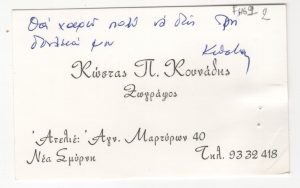 Θά χαρῶ πολύ νά δεῖς τη
δουλειά μου
Κώστας Π. Κουνάδης
Ζωγράφος
Ἀτελιέ: Ἁγν. Μαρτύρων 40
Νέα Σμύρνη Τηλ. 93 32 418